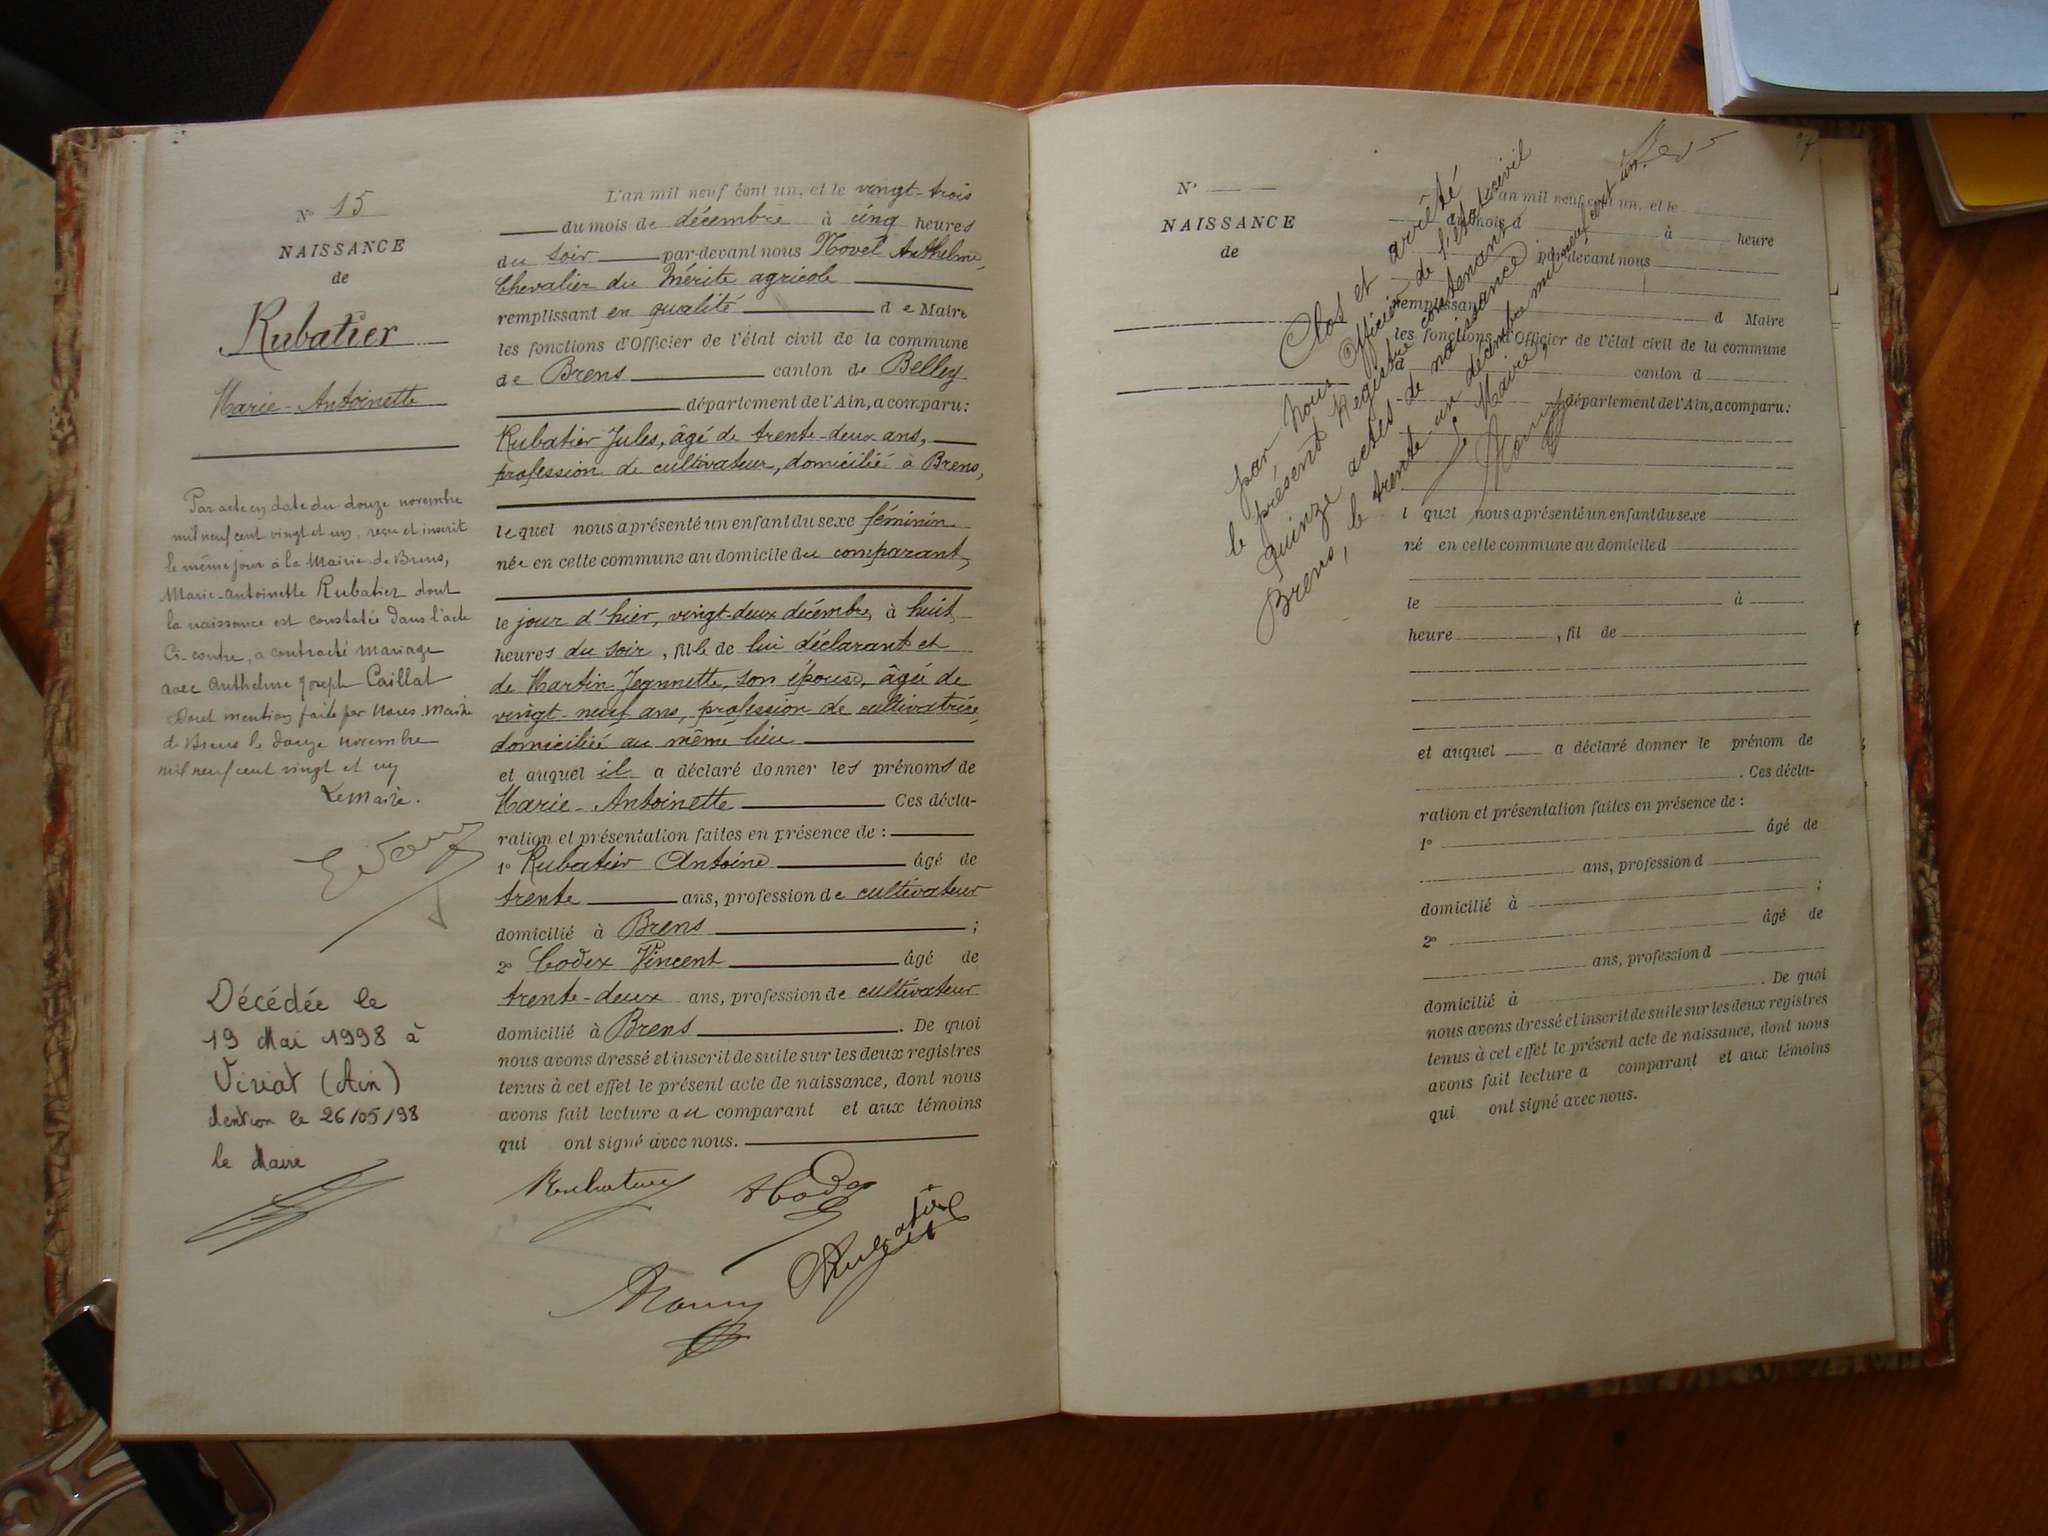 N° 15
NAISSANCE
de
Rubatier
Marie-Antoinette
Par acte en date du douze novembre
mil neuf cent vingt et un, reçu et inscrit
le même jour à la Mairie de Brens,
Marie-Antoinette Rubatier dont
la naissance est constatée dans l'acte
Ci-contre, a contracté mariage
avec Anthelme Joseph Caillat
Dont mention faite par Nous, Maire
de Brens le douze novembre
mil neuf cent vingt et un
Le Maire.
Décédée le
19 Mai 1998 à
Viriat (Ain)
Mention le 26/05/98
le Maire
L'an mil neuf cent un, et le vingt-trois
du mois de décembre à cinq heures
du soir par-devant nous Novel Anthelme,
Chevalier du Mérite agricole
remplissant en qualité de Maire
les fonctions d'Officier de l'état civil de la commune
de Brens canton de Belley
département de l'Ain, a comparu:
Rubatier Jules, âgé de trente-deux ans,
profession de cultivateur, domicilié à Brens,
lequel nous a présenté un enfant du sexe féminin
née en cette commune au domicile du comparant,
le jour d'hier, vingt-deux décembre, à huit
heures du soir, fille de lui déclarant et
de Martin Jeannette, son épouse, âgée de
vingt-neuf ans, profession de cultivatrice,
domiciliée au même lieu
et auquel il a déclaré donner les prénoms de
Marie-Antoinette Ces décla-
ration et présentation faites en présence de :
1° Rubatier Antoine âgé de
trente ans, profession de cultivateur
domicilié à Brens ;
2° Codex Vincent âgé de
trente-deux ans, profession de cultivateur
domicilié à Brens . De quoi
nous avons dressé et inscrit de suite sur les deux registres
tenus à cet effet le présent acte de naissance, dont nous
avons fait lecture au comparant et aux témoins
qui ont signé avec nous.
N°
NAISSANCE
de
Clos et arrêté
par Nous Officier de l'état civil
le présent Registre contenant
quinze actes de naissance
Brens, le trente un décembre mil neuf cent un.
Le Maire,
L'an mil neuf cent un, et le
du mois d à heure
par-devant nous
remplissant d Maire
les fonctions d'Officier de l'état civil de la commune
d canton d
département de l'Ain, a comparu:
l quel nous a présenté un enfant du sexe
né en cette commune au domicile d
le à
heure , fil de
et auquel a déclaré donner le prénom de
. Ces décla-
ration et présentation faites en présence de :
1° âgé de
ans, profession d
domicilié à ;
2° âgé de
ans, profession d
domicilié à . De quoi
nous avons dressé et inscrit de suite sur les deux registres
tenus à cet effet le présent acte de naissance, dont nous
avons fait lecture a comparant et aux témoins
qui ont signé avec nous.